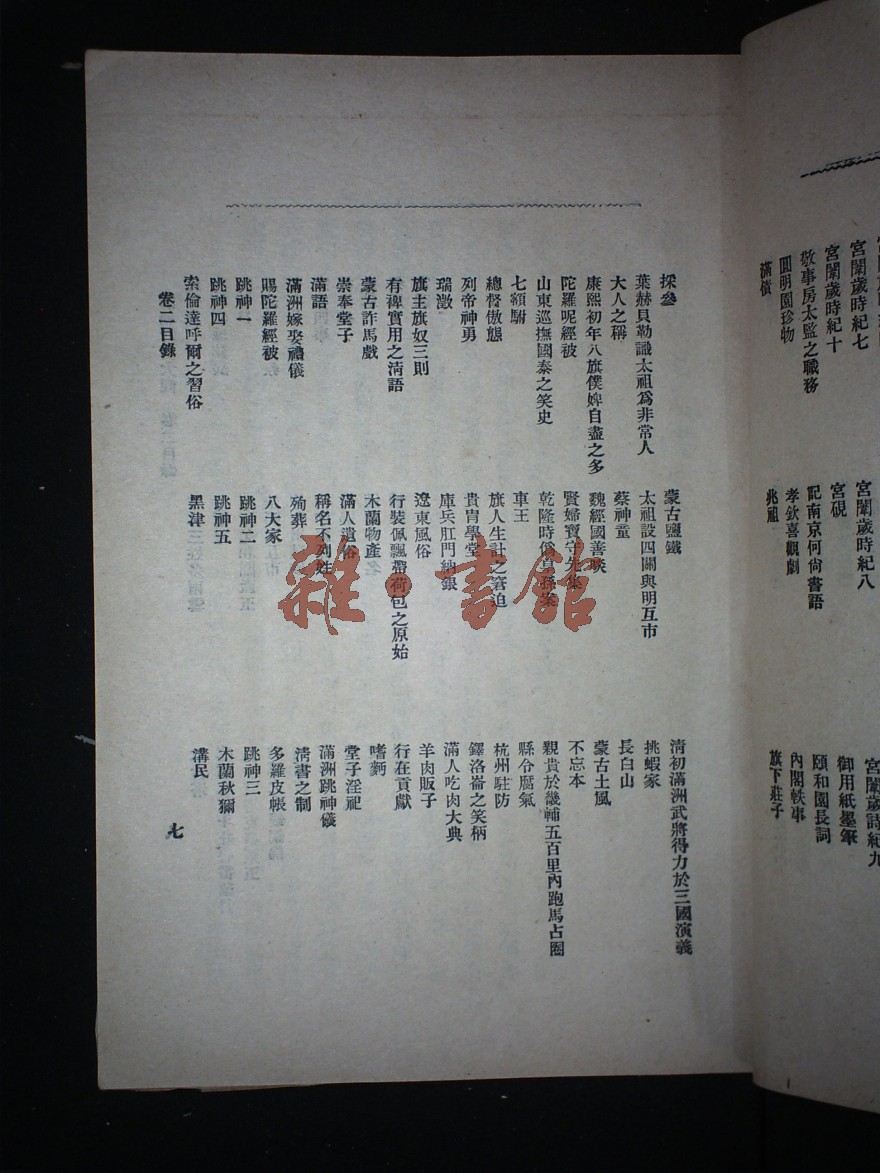 宮闈歲時紀七 宮闈歲時紀八 宮闈歲詩紀九
宮闈歲時紀十 宮硯 御用紙墨筆
敬事房太監之職務 記南京何尙書語 頤和園長詞
圓明園珍物 孝欽喜觀劇 內閣軼事
滿債 兆祖 旗下莊子
採參 蒙古鹽鐵 清初滿洲武將得力於三國演義
葉赫貝勒識太祖爲非常人 太祖設四關與明互市 挑蝦家
大人之稱 蔡神童 長白山
康熙初年八旗僕婢自盡之多 魏經國善啖 蒙古土風
陀羅呢經被 賢婦寶守先集 不忘本
山東巡撫國泰之笑史 乾隆時僞皇孫案 親貴於畿輔五百里內跑馬占圈
七額駙 車王 縣令腐氣
總督傲態 旗人生計之窘迫 杭州駐防
列帝神勇 貴胄學堂 鐸洛崙之笑柄
瑞澂 庫兵肛門納銀 滿人吃肉大典
旗主旗奴三則 遼東風俗 羊肉販子
有裨實用之淸語 行裝佩飄帶荷包之原始 行在貢獻
蒙古詐馬戲 木蘭物產 嗜麪
崇奉堂子 滿人遺俗 堂子淫祀
滿語 稱名不列姓 滿洲跳神儀
滿洲嫁娶禮儀 殉葬 淸書之制
賜陀羅經被 八大家 多羅皮帳
跳神一 跳神二 跳神三
跳神四 跳神五 木蘭秋獮
索倫達呼爾之習俗 黑津 溝民
卷二目錄 七
雜·書館